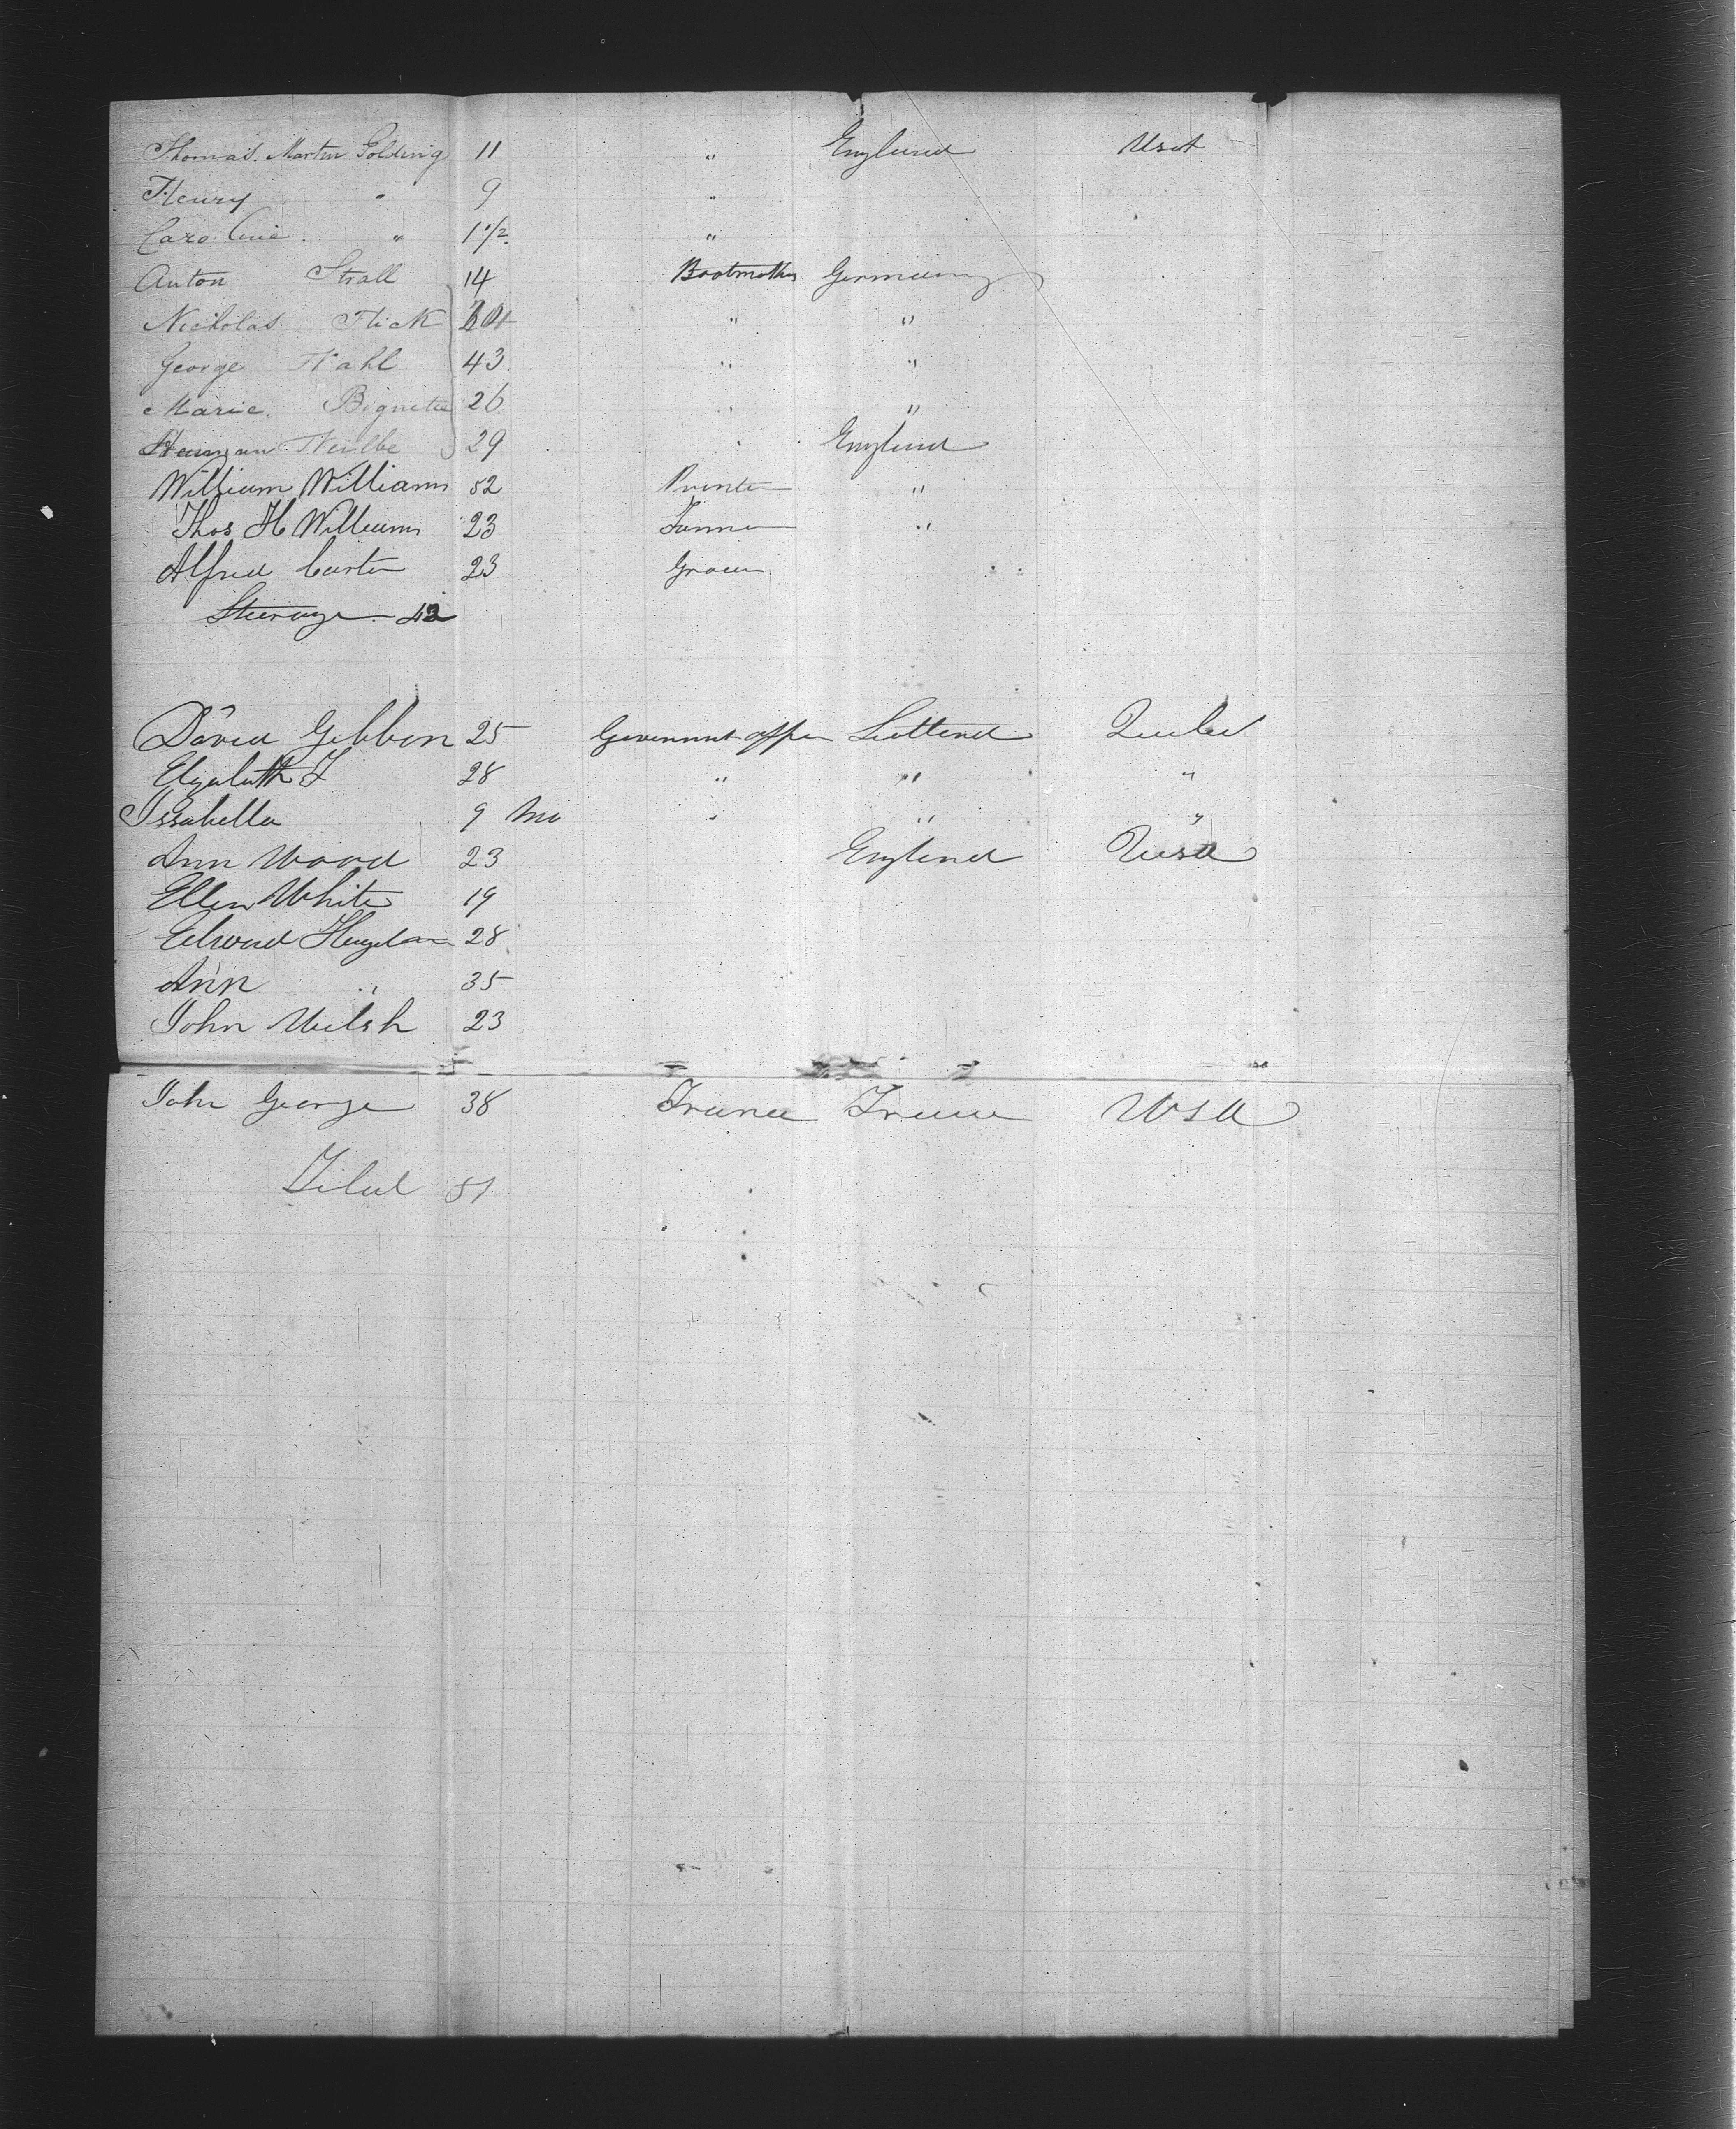 Thomas. Martin Golding 11 " England Usa
Henry " 9 "
Caroline. " 1 1/2 "
Anton Strall 14 Bootmaker Germany
Nicholas Flick " "
George Hahl 43 " "
Marie. 26 " "
29 " England
William Williams 52 Printer "
Thos H Williams 23 Farmer "
Alfred Carter 23 Grocer
Steerage 42
David Gibbon 25 Government offer Scotland Quebec
Elizabeth J 28 " " "
Issabella 9 Mo " " "
Ann Wood 23 England Usa
Ellen White 19
Edward 28
Ann " 35
John Welsh 23
John George 38 France France USA
Total 51